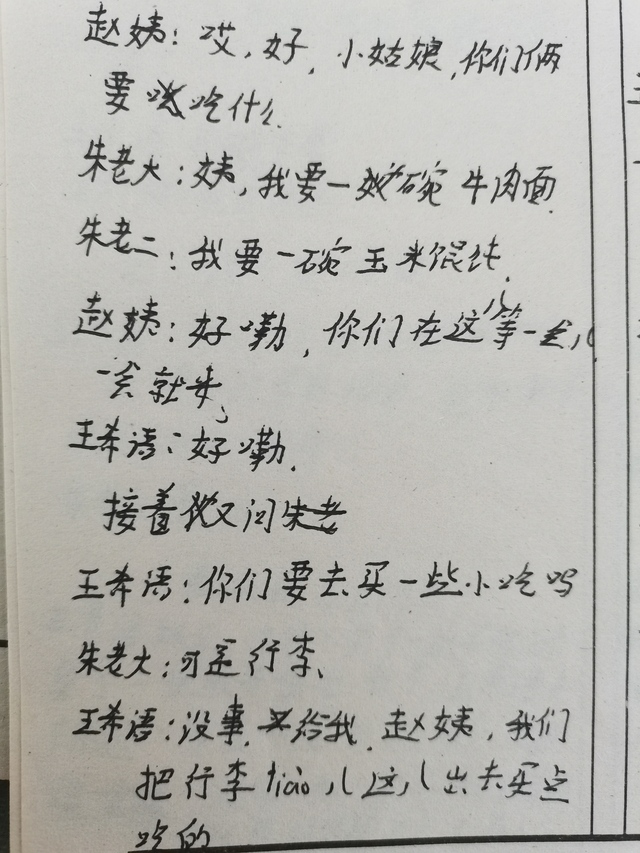 赵姨：哎，好，小姑娘，你们俩
要吃什么
朱老大：姨，我要一碗牛肉面
朱老二：我要一碗玉米馄饨，
赵姨：好嘞，你们在这儿等一会儿
一会就来，
王希语：好嘞，
接着又问朱老
王希语：你们要去买一些小吃吗
朱老大：可是行李、
王希语：没事，给我，赵姨，我们
把行李tiào儿这儿出去买点
吃的